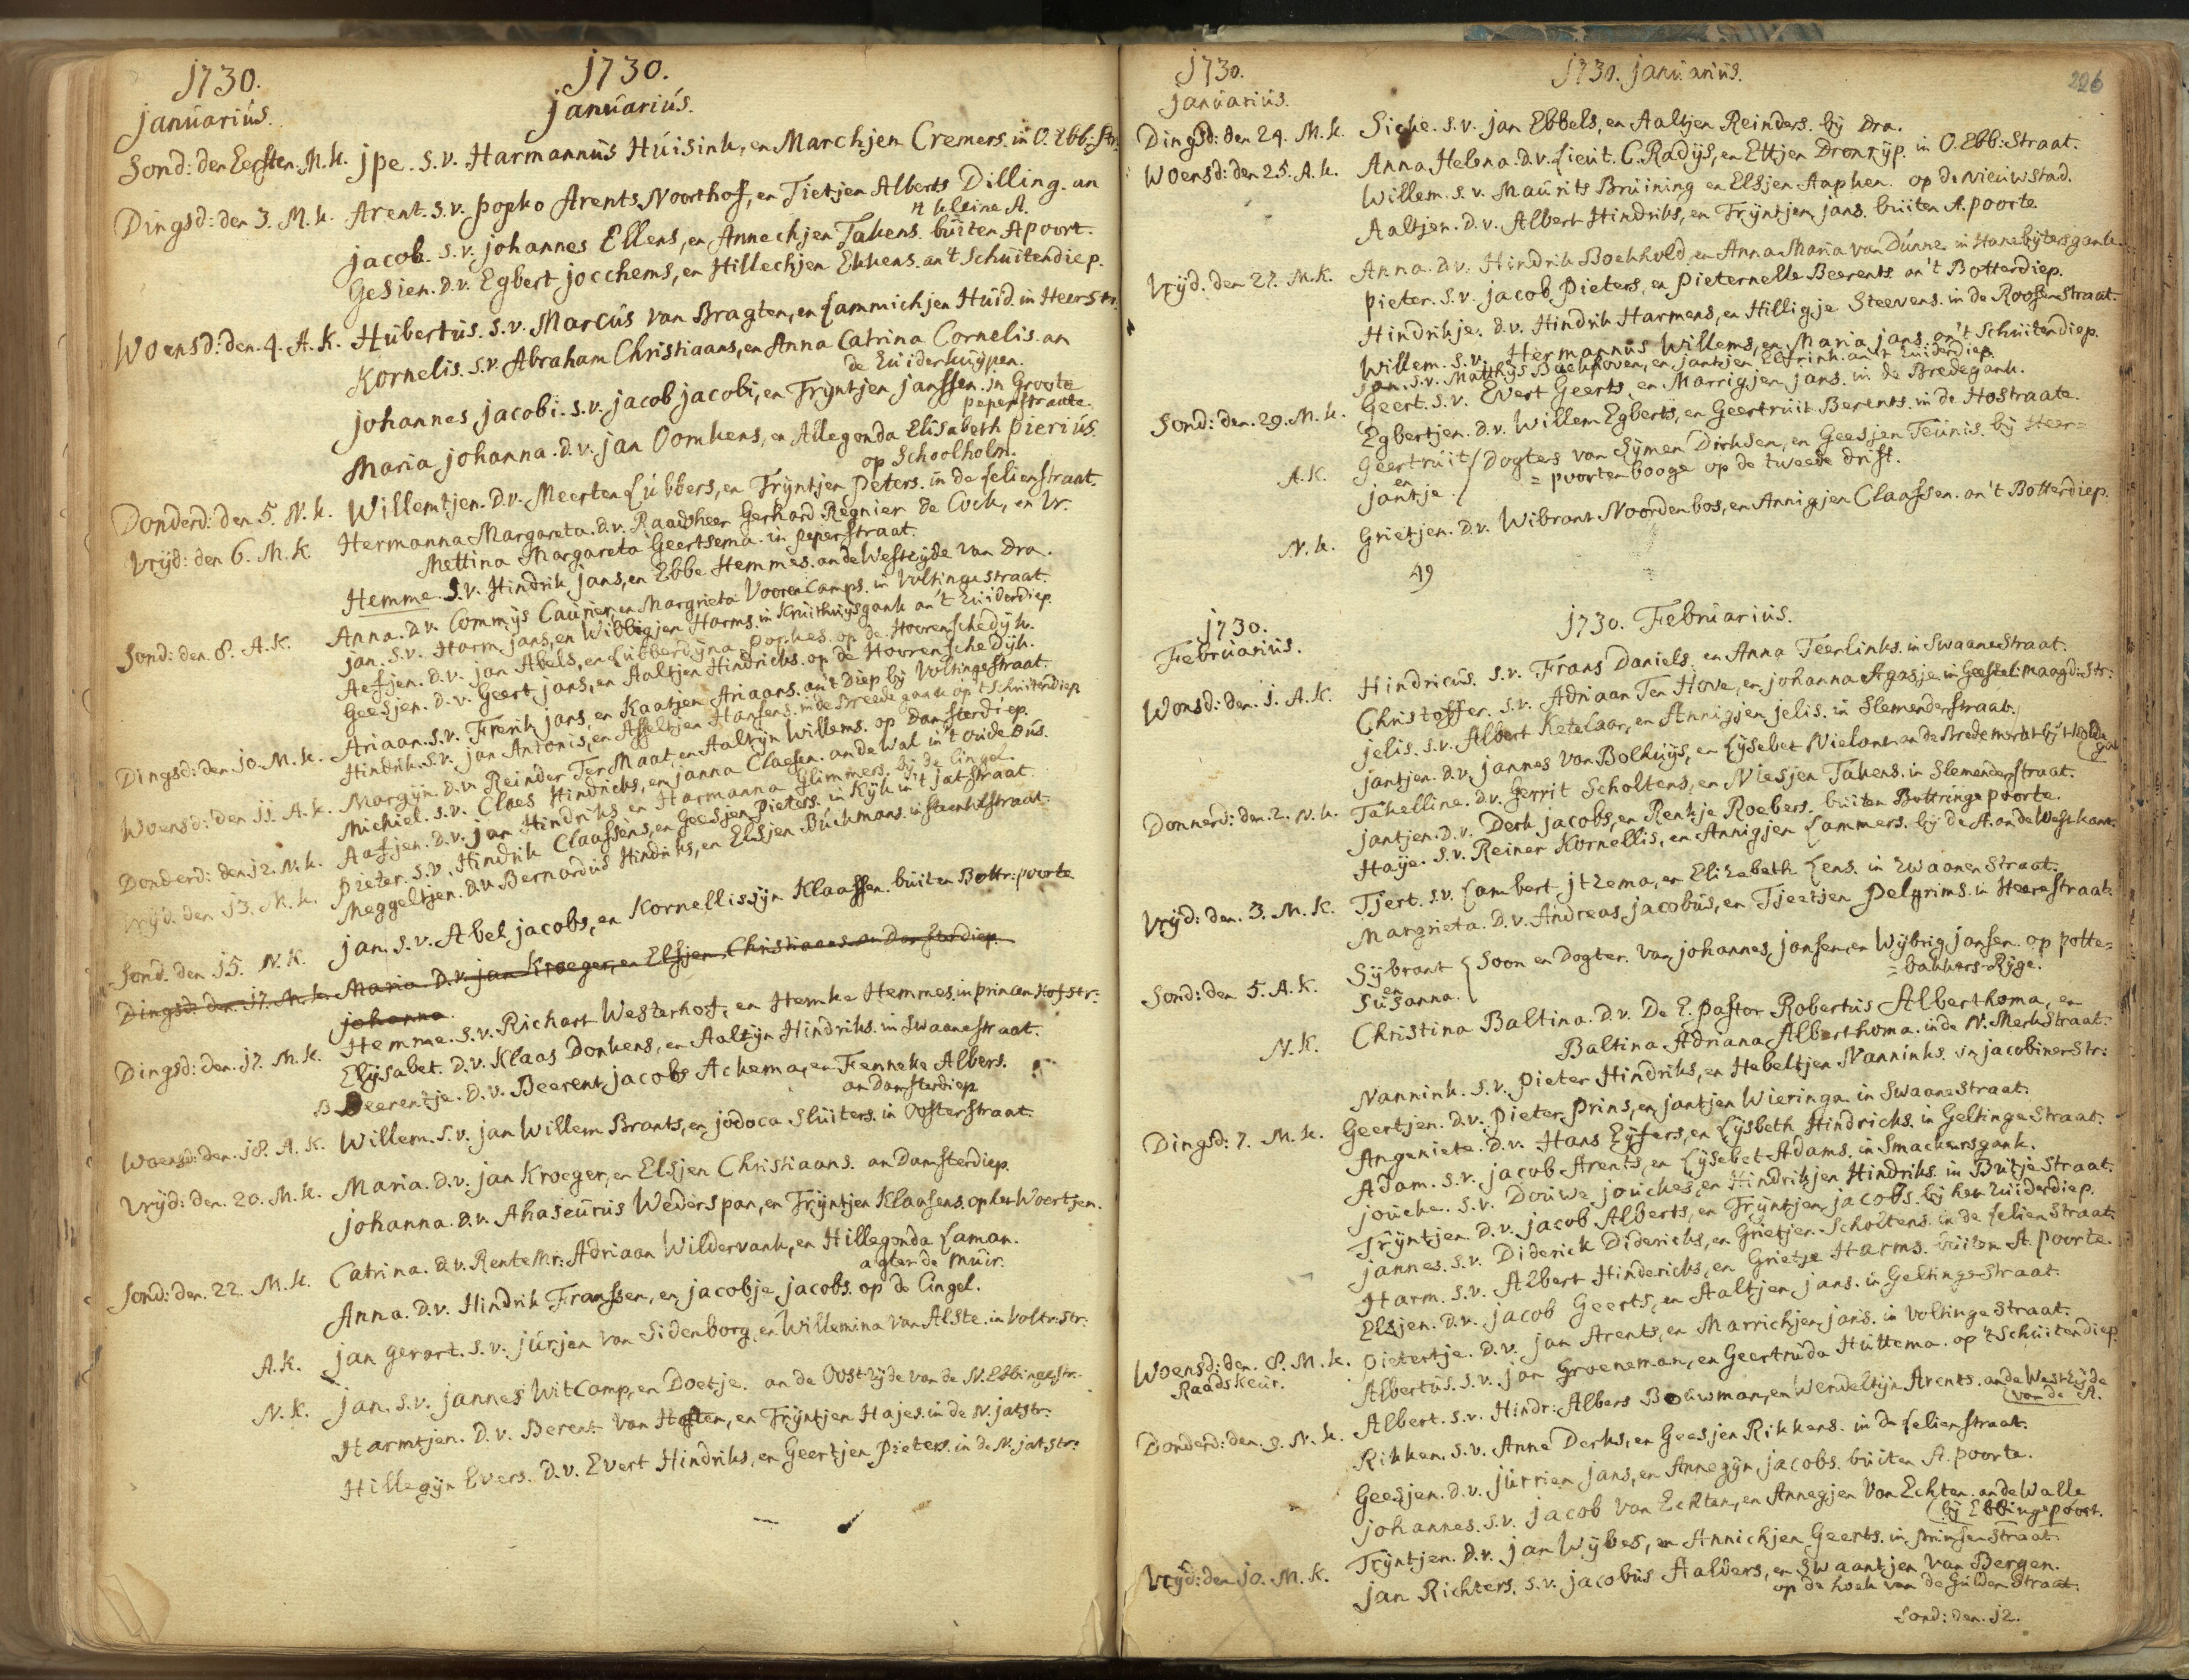 1730. 1730.
Januariús. Januariús.
Sond: den Eersten. M.k. Jpe. S.v. Harmannus Húisink, en Marchjen Cremers. in O. Ebb: Str:
Dingsd: den 3. M.k. Arent. S.v. Popko Arents Noorthof, en Tietjen Alberts Dilling. an
't kleine A.
Jacob. S.v. Johannes Ellens, en Annechjen Takens. búiten Apoort.
Gesien. D.v. Egbert Jocchems, en Hillechjen Ekkens. an't Schúitendiep.
Woensd: den 4. A.k. Húbertús. S.v. Marcús van Bragten, en Lammichjen Húid. in Heerstr.
Kornelis. S.v. Abraham Christiaans, en Anna Catrina Cornelis. an
de Zúiderkúypen.
Johannes Jacobi. S.v. Jacob Jacobi, en Trijntjen Janssen. in Groote
peperstraate.
Maria Johanna. D.v. Jan Oomkens, en Allegonda Elisabeth Pieriús.
op Schoolholm.
Donderd: den 5. N.k. Willemtjen. D.v. Meerten Lúbbers, en Trijntjen Peters. in de Lelienstraat.
Vrijd: den 6. M.k. Hermanna Margareta. D.v. Raadsheer Gerhard Regnier de Cock, en Vr.
Mettina Margareta Geertsema. in peperstraat.
Hemme. S.v. Hindrik Jans, en Ebbe Hemmes. an de Westzijde van Dra.
Sond: den 8. A.k. Anna. D.v. Commijs Caúrier, en Margrieta Voorencamps. in Voltingestraat.
Jan. S.v. Harm Jans, en Wibbigjen Harms. in Krúithúijsgank an't Zúiderdiep.
Aefjen. D.v. Jan Abels, en Lúbberdijna Popkes. op de Hoorenschedijk.
Geesjen. D.v. Geert Jans, en Aaltjen Hindricks. op de Hoorenschedijk.
Dingsd: den 10. M.k. Ariaan. S.v. Frerik Jans, en Kaatjen Ariaans. an't Diep bij Voltingestraat.
Hindrik. S.v. Jan Antonis, en Asseltjen Hansens. in de Breedegank op't Schúitendiep.
Woensd: den 11. A.k. Margijn. D.v. Reinder Ter Maat, en Aaltijn Willems. op Damsterdiep.
Michiel. S.v. Claes Hindricks, en Janna Claesen. an de Wal in't oúde Dús.
Donderd: den 12. N.k. Aafjen. D.v. Jan Hindriks en Harmanna Glimmers. bij de Cingel.
Vrijd. den 13. M.k. Pieter. S.v. Hindrik Claassens, en Geesjen Pieters. in Kijk in't Jatstraat.
Meggeltjen. D.v. Bernardús Hindriks, en Elsjen Búckmans. in Steentilstraat.
Sond. den 15. N.k. Jan. S.v. Abel Jacobs, en Kornellissijn Klaassen. búiten Bottr: poorte
Dingsd: den 17. M.k. Maria D.v. Jan Kroeger, en Elsjen Christiaans. an Damsterdiep.
Johanna.
Dingsd: den 17. M.k. Hemme. S.v. Richart Westerhof, en Hemke Hemmes. in Princenhofstr:
Elijsabet. D.v. Klaas Donkens, en Aaltijn Hindriks. in Swaanestraat.
B Beerentje. D.v. Beerent Jacobs Ackema, en Fenneke Albers.
an Damsterdiep
Woensd: den 18. A.k. Willem. S.v. Jan Willem Brants, en Jodoca Slúiters. in Oosterstraat.
Vrijd: den 20. M.k. Maria. D.v. Jan Kroeger, en Elsjen Christiaans. an Damsterdiep.
Johanna. D.v. Ahaseúrus Wederspan, en Trijntjen Klaasens. op het Woertjen.
Sond: den 22. M.k. Catrina. D.v. Rentemr: Adriaan Wildervank, en Hillegonda Laman.
agter de Múir.
Anna. D.v. Hindrik Franssen, en Jacobje Jacobs. op de Cingel.
A.k. Jan Gerart. S.v. Júrjen van Sidenborg, en Willemina van Alste. in Voltr: Str:
N.k. Jan. S.v. Jannes Witcamp, en Doetje. an de Oostzijde van de N. Ebbingestr:
Harmtjen. D.v. Berent van Hosten, en Trijntjen Hajes. in de N. Jatstr:
Hillegijn Evers. D.v. Evert Hindriks, en Geertjen Pieters. in de N. Jatstr:
1730. 1730. Januariús. 226
Januariús.
Dingsd: den 24. M.k. Sicke. S.v. Jan Ebbels, en Aaltjen Reinders. bij Dra.
Woensd: den 25. A.k. Anna Helena. D.v. Lieút. C. Radijs, en Ettjen Dronrijp. in O. Ebb: Straat.
Willem. S.v. Maúrits Brúining en Elsjen Aapken. op de Nieúwstad.
Aaltjen. D.v. Albert Hindriks, en Trijntjen Jans. búiten A. poorte
Vrijd. den 27. M.k. Anna. D.v. Hindrik Boekhold, en Anna Maria van Dúnne. in Hanebijtersgank.
Pieter. S.v. Jacob Pieters, en Pieternelle Beerents an't Botterdiep.
Hindrikje. D.v. Hindrik Harmens, en Hilligje Steevens. in de Roosenstraat.
Willem. S.v. Hermannús Willems, en Maria Jans. an't Schúitendiep.
Jan. S.v. Matthijs Backhoven, en Jantjen Elfrink. an't Zúiderdiep.
Sond: den 29. M.k. Geert. S.v. Evert Geerts, en Marrigjen Jans. in de Bredegank.
Egbertjen. D.v. Willem Egberts, en Geertrúit Berents. in de Hofstraate.
A.k. Geertrúit / Dogters van Sijmen Dirksen, en Geesjen Teúnis. bij Heer=
en = poortenbooge op de tweede drift.
Jantje.
N.k. Grietjen. D.v. Wibrant Noordenbos, en Annigjen Claassen. an't Botterdiep.
49
1730. 1730. Februariús.
Februariús.
Wonsd: den 1. A.k. Hindricús. S.v. Frans Daniels, en Anna Teerlinks. in Swaanestraat.
Christoffer. S.v. Adriaan Ten Hove, en Johanna Agasje. in Geestel: maagd: Str:
Jelis. S.v. Albert Ketelaar, en Annigjen Jelis. in Slemenderstraat.
Jantjen. D.v. Jannes van Bolhúijs, en Lijsebet Nielant an de Bredemarkt bij't Kolde
gat
Donnerd: den 2. N.k. Takelline. D.v. Gerrit Scholtens, en Niesjen Takens. in Slemenderstraat.
Jantjen. D.v. Derk Jacobs, en Rentje Roebers. búiten Bottringe poorte.
Haije. S.v. Reiner Kornellis, en Annigjen Lammers. bij de A. an de Westkant.
Vrijd: den 3. M.k. Tjert. S.v. Lambert Jtzema, en Elizabeth Lens. in Zwaanenstraat.
Margrieta. D.v. Andreas Jacobús, en Tjeetjen Pelgrims. in Heerestraat.
Sond: den 5. A.k. Sijbrant { Soon en Dogter. van Johannes Jansen, en Wijbrig Jansen. op Potte=
en = bakkers-Rijge.
Súsanna.
N.k. Christina Baltina. D.v. De E. Pastor Robertús Alberthoma, en
Baltina Adriana Alberthoma. in de N. Merkstraat.
Nannink. S.v. Pieter Hindriks, en Hebeltjen Nanninks. in Jacobinerstr:
Dingsd: 7. M.k. Geertjen. D.v. Pieter Prins, en Jantjen Wieringa. in Swaanestraat.
Angenieta. D.v. Hans Eijfers, en Lijsbeth Hindricks. in Geltingestraat.
Adam. S.v. Jacob Arents, en Lijsebet Adams. in Smackersgank.
Joúcke. S.v. Doúwe Joúckes, en Hindrikjen Hindriks. in Bútjestraat.
Trijntjen. D.v. Jacob Alberts, en Trijntjen Jacobs. bij het Zúiderdiep.
Jannes. S.v. Diderick Didericks, en Grietjen Scholtens. in de Lelienstraat.
Harm. S.v. Albert Hindericks, en Grietje Harms. búiten A. poorte.
Elsjen. D.v. Jacob Geerts, en Aaltjen Jans. in Geltingestraat.
Woensd: den 8. M.k. Pietertje. D.v. Jan Arents, en Marrichjen Jans. in Voltingestraat.
Raadskeúr. Albertús. S.v. Jan Groeneman, en Geertrúda Húttema. op't Schúitendiep.
Donderd: den 9. N.k. Albert. S.v. Hindr: Albers Boúwman, en Wendeltijn Arents. an de Westzijde
van de A.
Rikken. S.v. Anne Derks, en Geesjen Rikkens. in de Lelienstraat.
Geesjen. D.v. Júrrien Jans, en Annegijn Jacobs. búiten A. poorte.
Johannes. S.v. Jacob van Echten, en Annegjen van Echten. an de Walle
bij Ebbingepoort.
Vrijd: den 10. M.k. Trijntjen. D.v. Jan Wijbes, en Annichjen Geerts. in Prinsenstraat.
Jan Richters. S.v. Jacobús Aalders, en Swaantjen van Bergen.
op de hoek van de Gúlden Straat.
Sond: den 12.